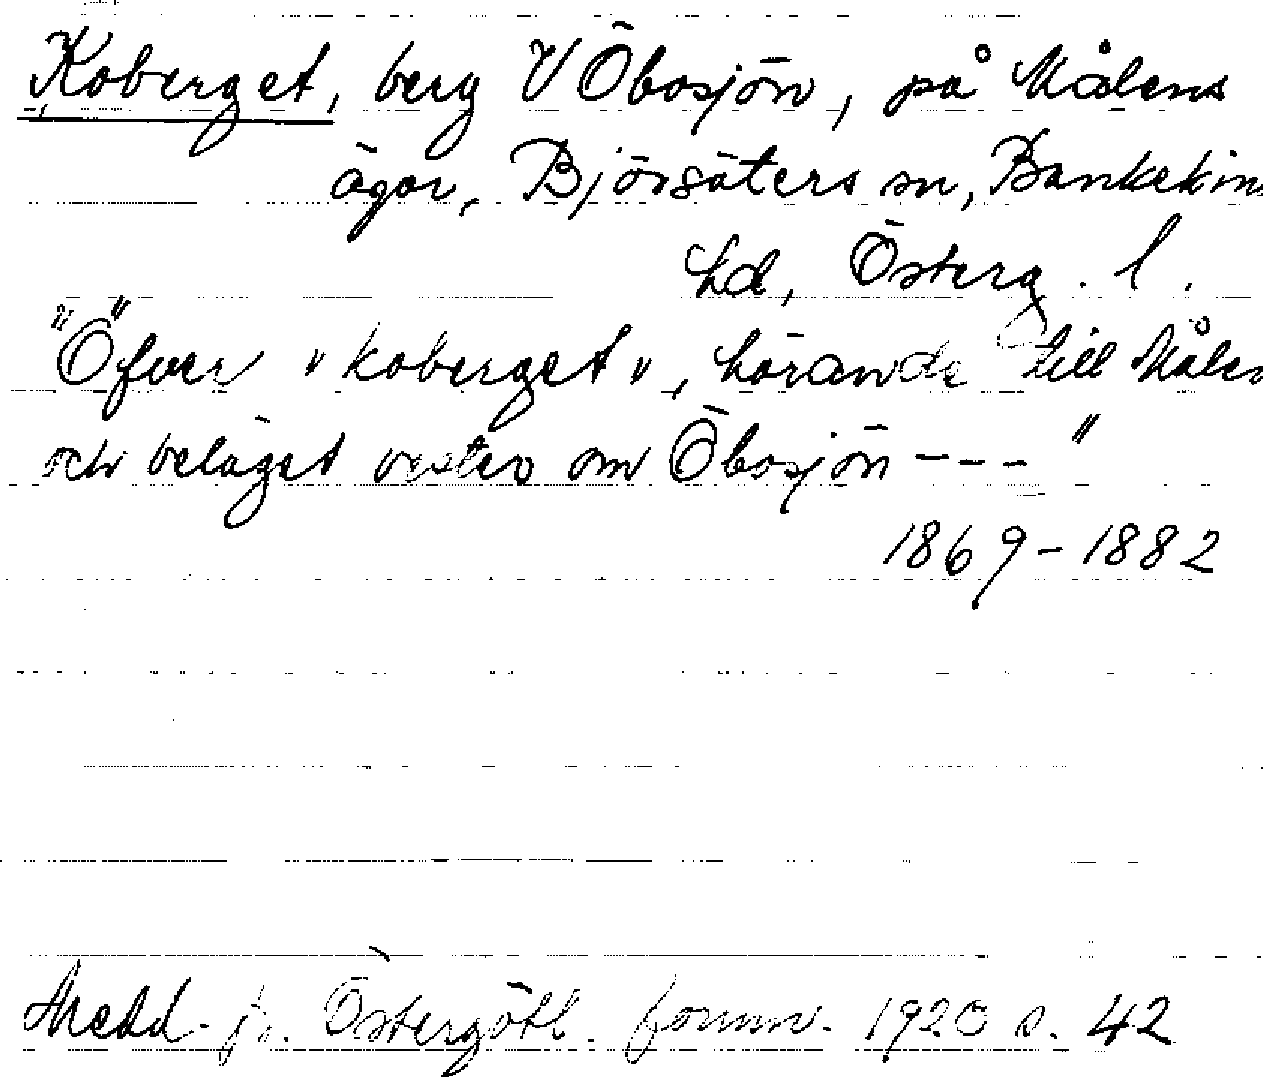 Koberget, berg V Öbosjön, på Målens
ägor, Björsäters sn, Bankekin
hd, Österg. l.
"Öfver "koberget", hörande till Målen
och beläget vester om Öbosjön --- "
1869-1882
Medd. fr. Östergötl. fornm. 1920 s. 42